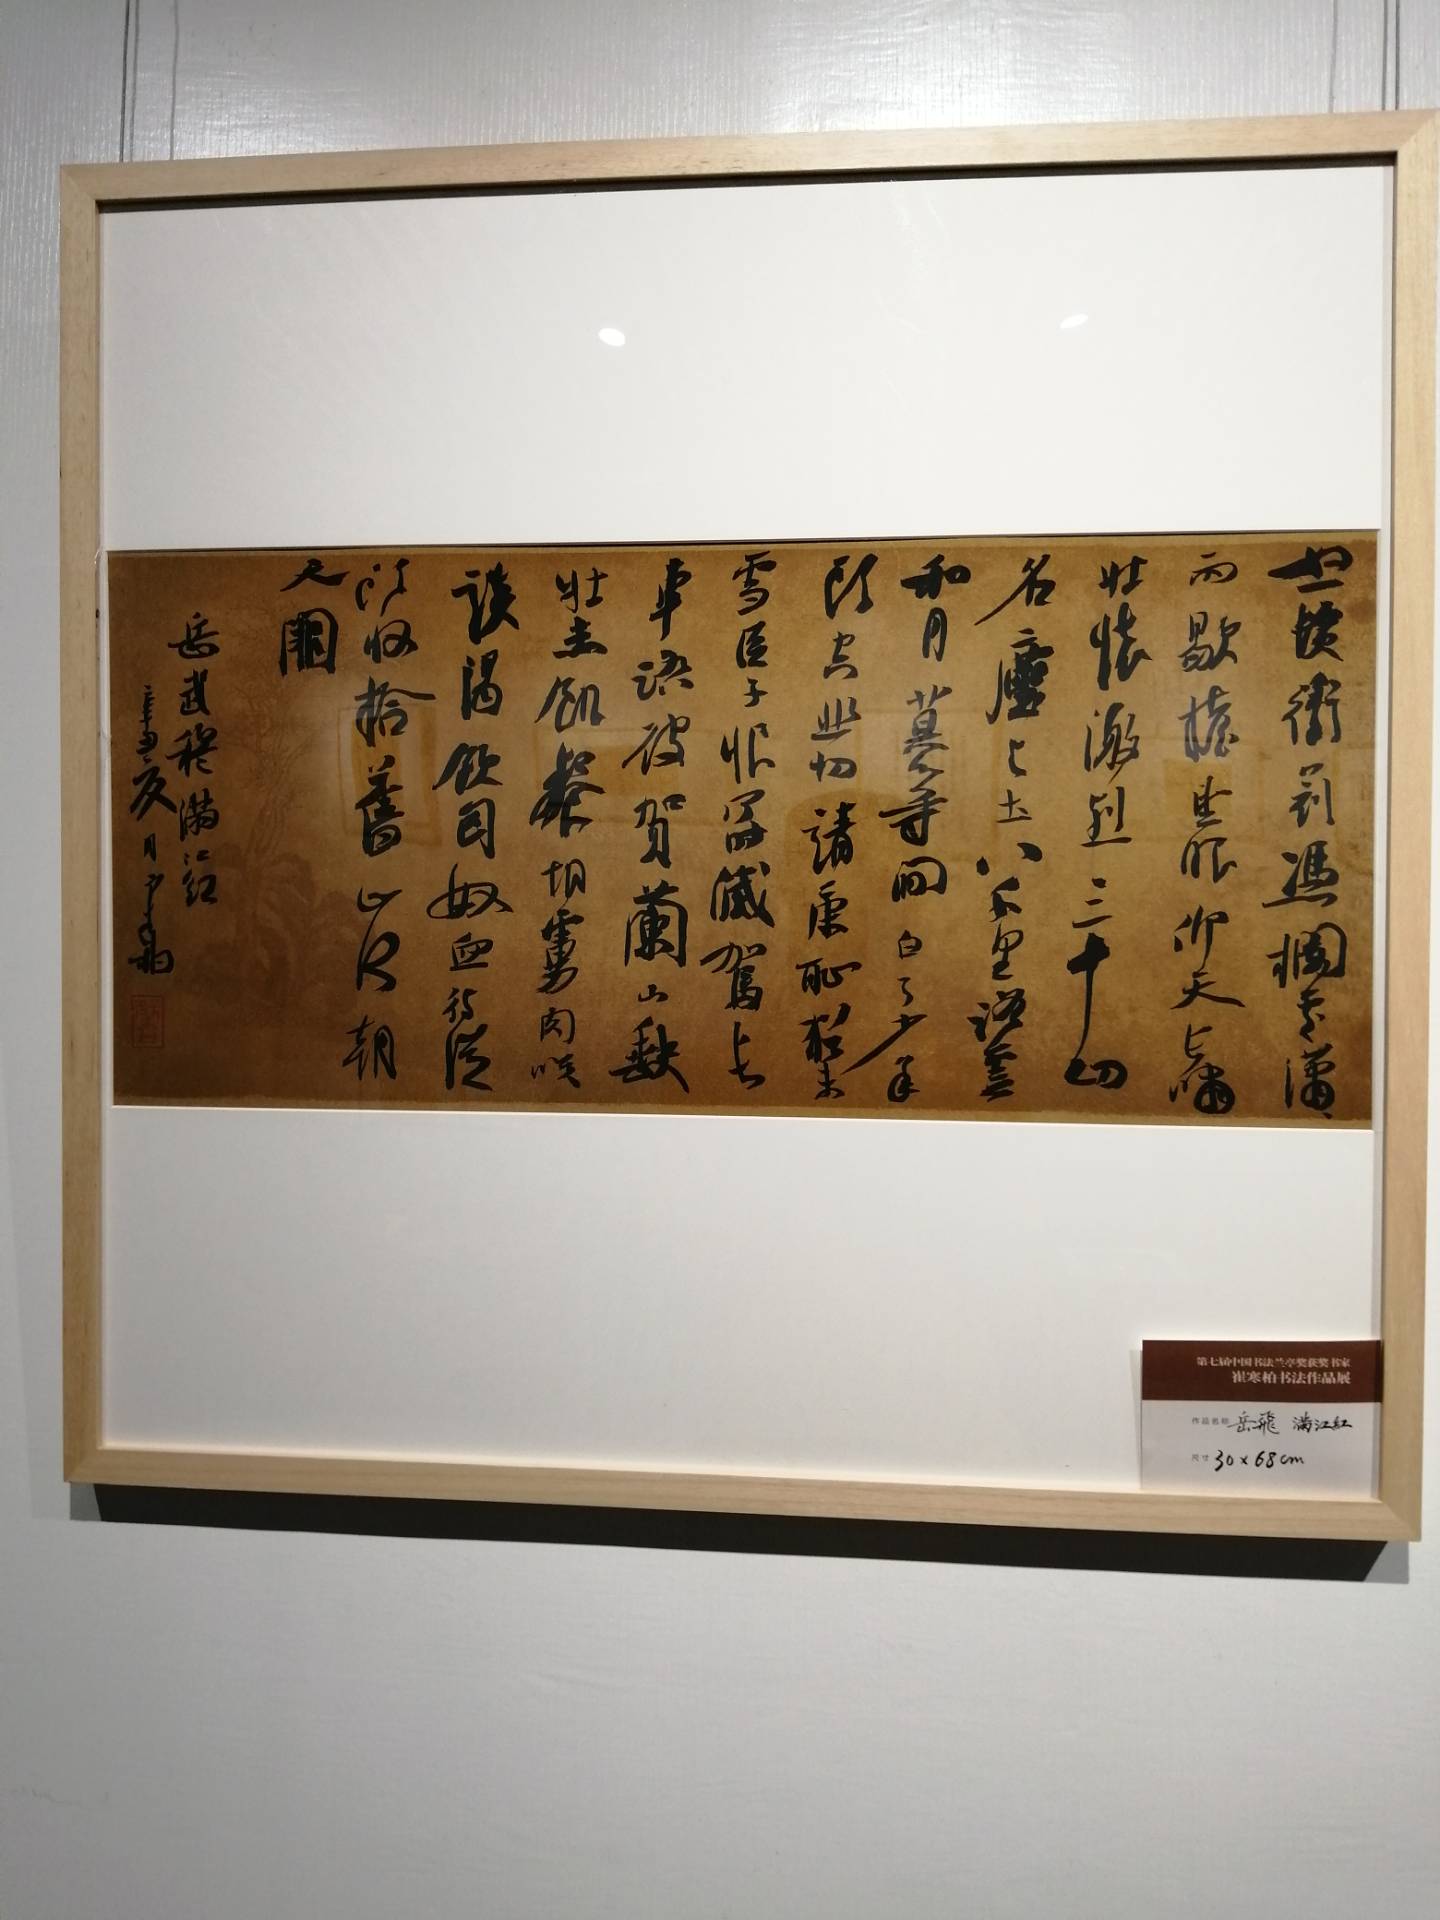 怒髮衝冠憑欄處瀟
雨歇擡望眼仰天長嘯
壯懷激烈三十功
名塵与土八千里路雲
和月莫等閒白了少年
頭空悲切靖康恥猶未
雪臣子恨滅駕長
車踏破賀蘭山缺
壯志飢餐胡虜肉笑
談渴飲匈奴血待從
頭收拾舊山河朝
天闕
岳武穆滿江紅
辛丑夏月寒柏
第七届中国书法兰亭奖获奖书家
崔寒柏书法作品展
作品名称 岳飛 滿江紅
尺寸 30×68cm